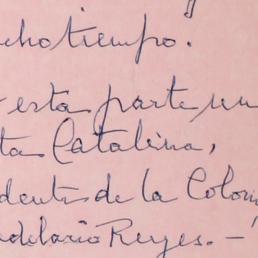 cho tiempo.
esta parte un
ta Catalina,
dente de la Colon
delario Reyes. -